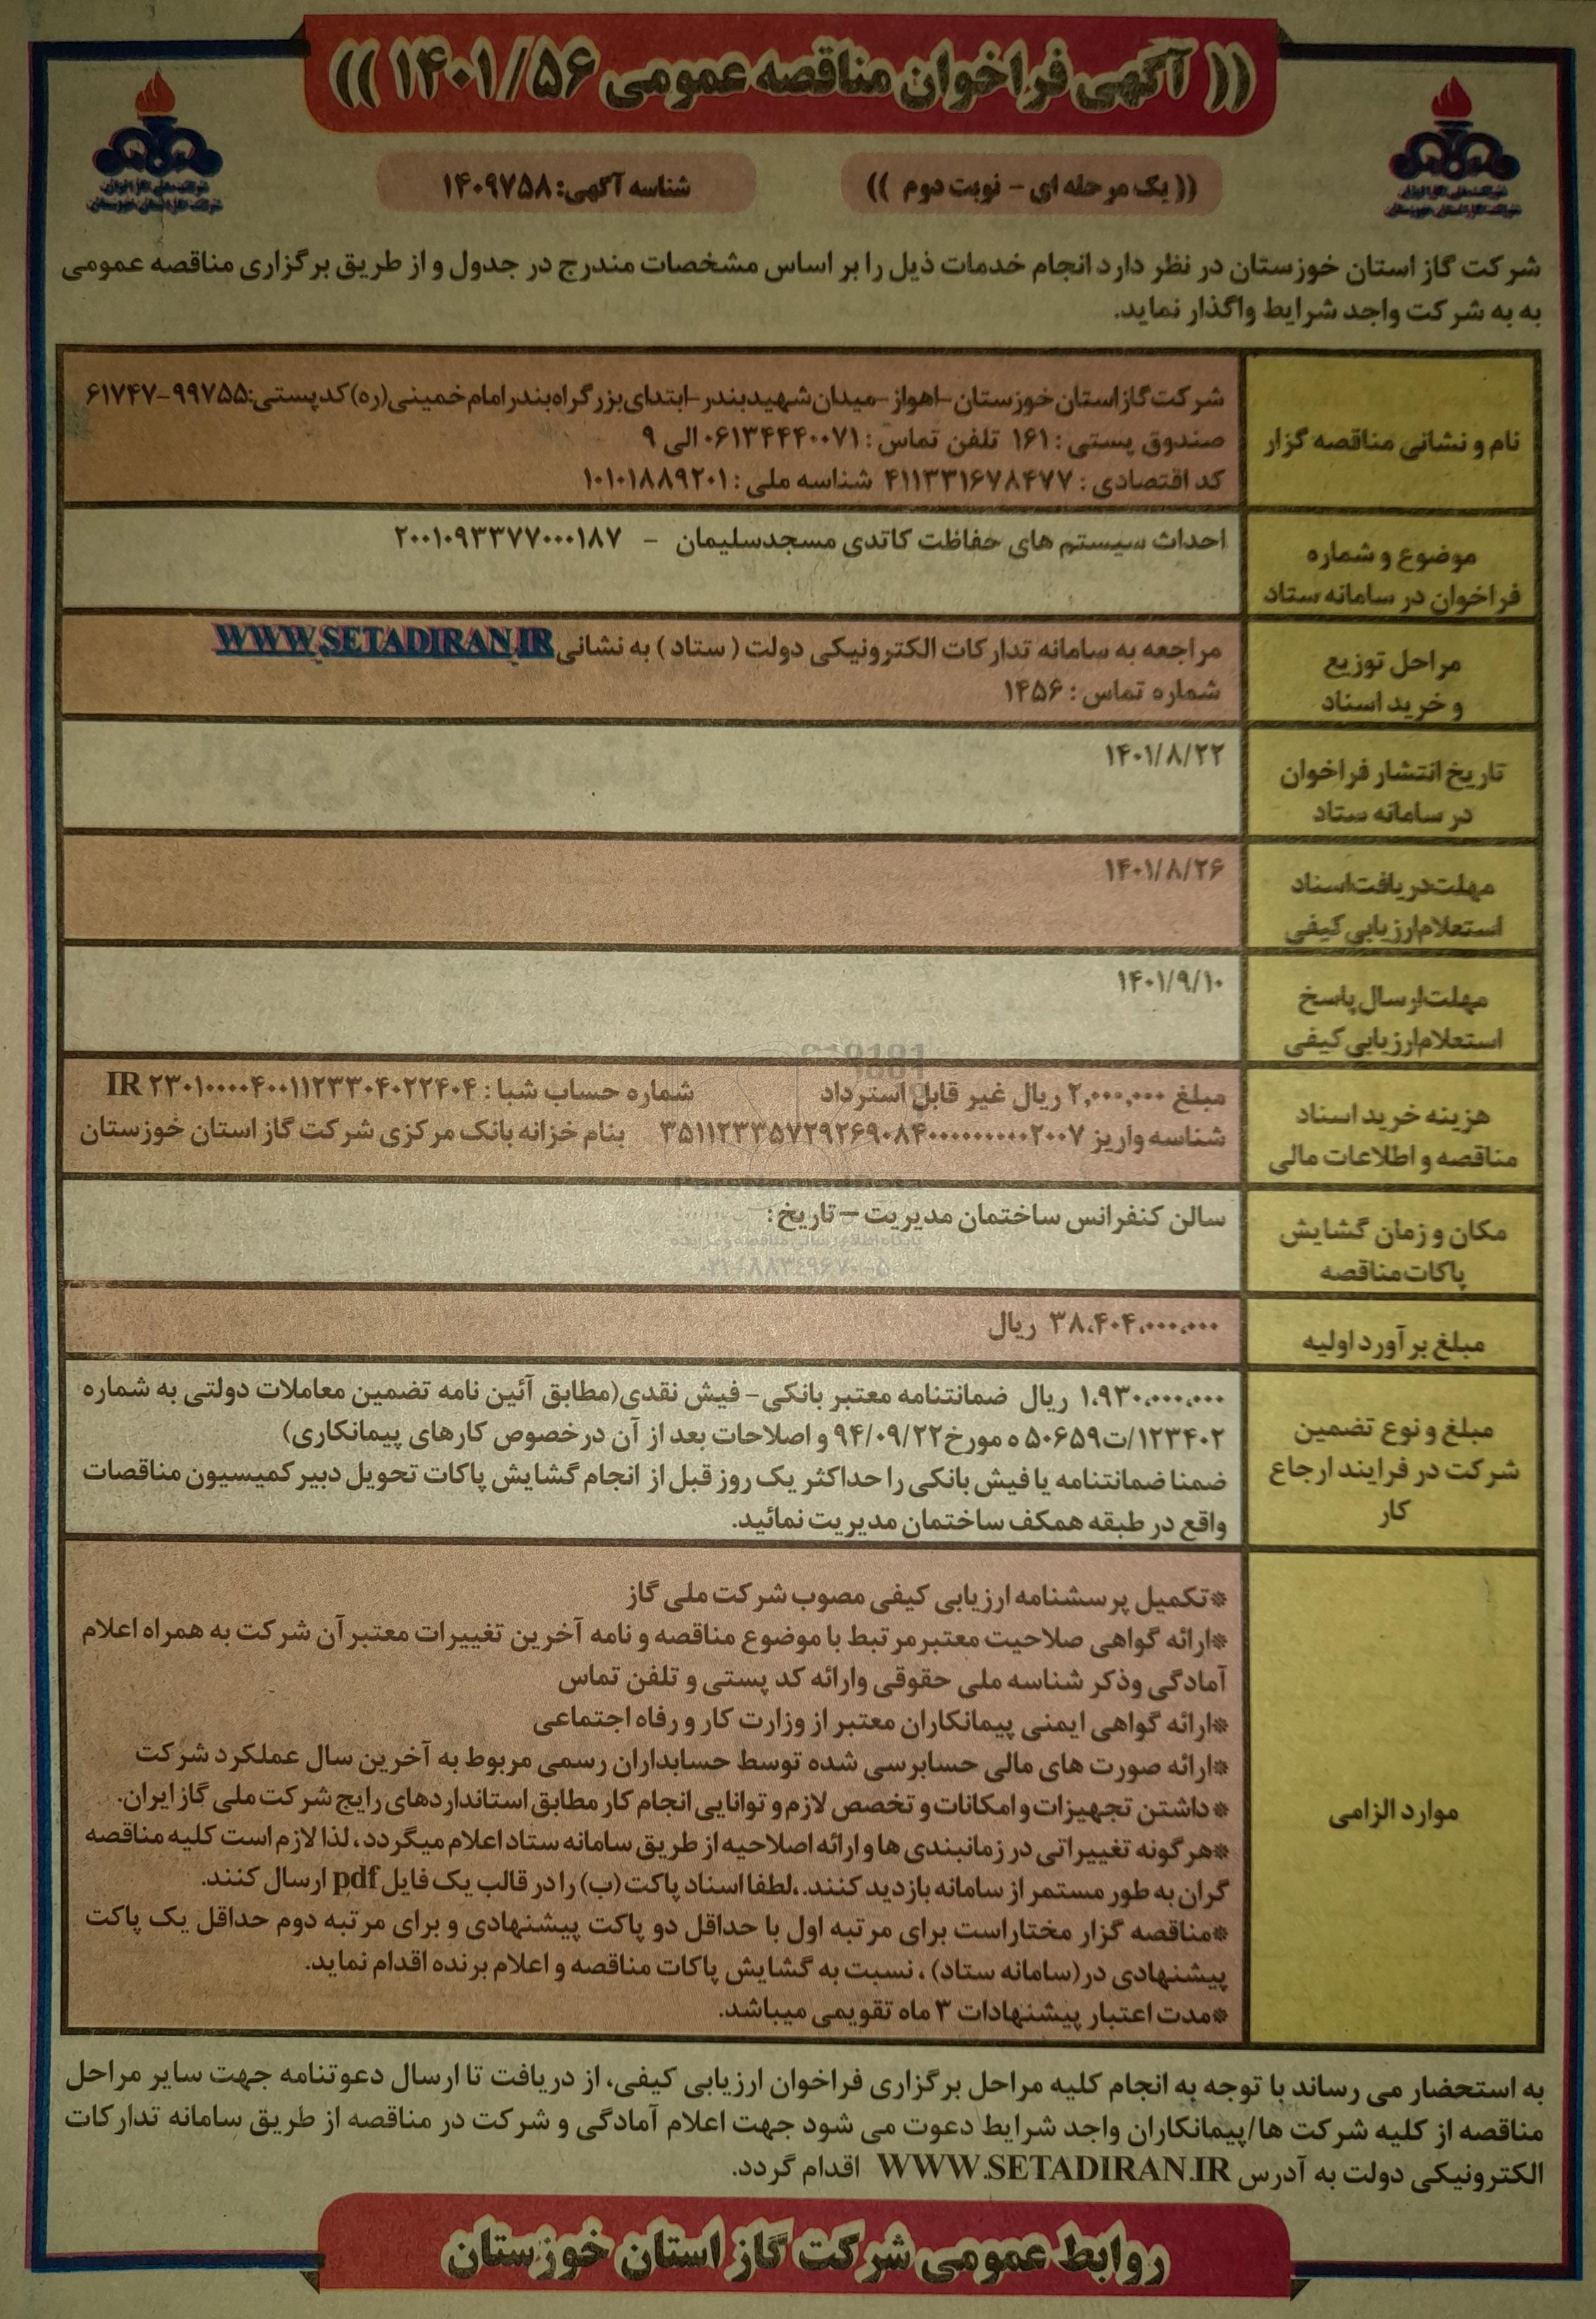 (( آگهی فراخوان مناقصه عمومی ۱۴۰۱/۵۶ ))
(( یک مرحله ای - نوبت دوم ))
شناسه آگهی: ۱۴۰۹۷۵۸
شرکت ملی گاز ایران
شرکت گاز استان خوزستان
شرکت ملی گاز ایران
شرکت گاز استان خوزستان
شرکت گاز استان خوزستان در نظر دارد انجام خدمات ذیل را بر اساس مشخصات مندرج در جدول و از طریق برگزاری مناقصه عمومی
به به شرکت واجد شرایط واگذار نماید.
نام و نشانی مناقصه گزار
شرکت گاز استان خوزستان-اهواز-میدان شهید بندر-ابتدای بزرگراه بندر امام خمینی(ره) کد پستی:۹۹۷۵۵-۶۱۷۴۷
صندوق پستی : ۱۶۱ تلفن تماس : ۰۶۱۳۴۴۴۰۰۷۱ الی ۹
کد اقتصادی : ۴۱۱۳۳۱۶۷۸۴۷۷ شناسه ملی : ۱۰۱۰۱۸۸۹۲۰۱
موضوع و شماره
فراخوان در سامانه ستاد
احداث سیستم های حفاظت کاتدی مسجدسلیمان - ۲۰۰۱۰۹۳۳۷۷۰۰۰۱۸۷
مراحل توزیع
و خرید اسناد
مراجعه به سامانه تدارکات الکترونیکی دولت ( ستاد ) به نشانی WWW.SETADIRAN.IR
شماره تماس : ۱۴۵۶
تاریخ انتشار فراخوان
در سامانه ستاد
۱۴۰۱/۸/۲۲
مهلت دریافت اسناد
استعلام ارزیابی کیفی
۱۴۰۱/۸/۲۶
مهلت ارسال پاسخ
استعلام ارزیابی کیفی
۱۴۰۱/۹/۱۰
هزینه خرید اسناد
مناقصه و اطلاعات مالی
مبلغ ۲,۰۰۰,۰۰۰ ریال غیر قابل استرداد شماره حساب شبا : IR ۲۳۰۱۰۰۰۰۴۰۰۱۱۲۳۳۰۴۰۲۲۴۰۴
شناسه واریز ۳۵۱۱۲۳۳۵۷۲۹۲۶۹۰۸۴۰۰۰۰۰۰۰۰۰۰۲۰۰۷ بنام خزانه بانک مرکزی شرکت گاز استان خوزستان
مکان و زمان گشایش
پاکات مناقصه
سالن کنفرانس ساختمان مدیریت – تاریخ :
پایگاه اطلاع رسانی مناقصه و مزایده
۰۲۱-۸۸۳۴۹۶۷۰-۵
مبلغ برآورد اولیه
۳۸،۴۰۴،۰۰۰،۰۰۰ ریال
مبلغ و نوع تضمین
شرکت در فرایند ارجاع
کار
۱،۹۳۰،۰۰۰،۰۰۰ ریال ضمانتنامه معتبر بانکی- فیش نقدی(مطابق آئین نامه تضمین معاملات دولتی به شماره
۱۲۳۴۰۲/ت۵۰۶۵۹ ه مورخ ۹۴/۰۹/۲۲ و اصلاحات بعد از آن در خصوص کارهای پیمانکاری)
ضمنا ضمانتنامه یا فیش بانکی را حداکثر یک روز قبل از انجام گشایش پاکات تحویل دبیر کمیسیون مناقصات
واقع در طبقه همکف ساختمان مدیریت نمائید.
موارد الزامی
*تکمیل پرسشنامه ارزیابی کیفی مصوب شرکت ملی گاز
*ارائه گواهی صلاحیت معتبر مرتبط با موضوع مناقصه و نامه آخرین تغییرات معتبر آن شرکت به همراه اعلام
آمادگی وذکر شناسه ملی حقوقی وارائه کد پستی و تلفن تماس
*ارائه گواهی ایمنی پیمانکاران معتبر از وزارت کار و رفاه اجتماعی
*ارائه صورت های مالی حسابرسی شده توسط حسابداران رسمی مربوط به آخرین سال عملکرد شرکت
*داشتن تجهیزات و امکانات و تخصص لازم و توانایی انجام کار مطابق استانداردهای رایج شرکت ملی گاز ایران.
*هر گونه تغییراتی در زمانبندی ها و ارائه اصلاحیه از طریق سامانه ستاد اعلام میگردد، لذا لازم است کلیه مناقصه
گران به طور مستمر از سامانه بازدید کنند.،لطفا اسناد پاکت (ب) را در قالب یک فایل pdf ارسال کنند.
*مناقصه گزار مختار است برای مرتبه اول با حداقل دو پاکت پیشنهادی و برای مرتبه دوم حداقل یک پاکت
پیشنهادی در (سامانه ستاد) ، نسبت به گشایش پاکات مناقصه و اعلام برنده اقدام نماید.
*مدت اعتبار پیشنهادات ۳ ماه تقویمی میباشد.
به استحضار می رساند با توجه به انجام کلیه مراحل برگزاری فراخوان ارزیابی کیفی، از دریافت تا ارسال دعوتنامه جهت سایر مراحل
مناقصه از کلیه شرکت ها/پیمانکاران واجد شرایط دعوت می شود جهت اعلام آمادگی و شرکت در مناقصه از طریق سامانه تدارکات
الکترونیکی دولت به آدرس WWW.SETADIRAN.IR اقدام گردد.
روابط عمومی شرکت گاز استان خوزستان